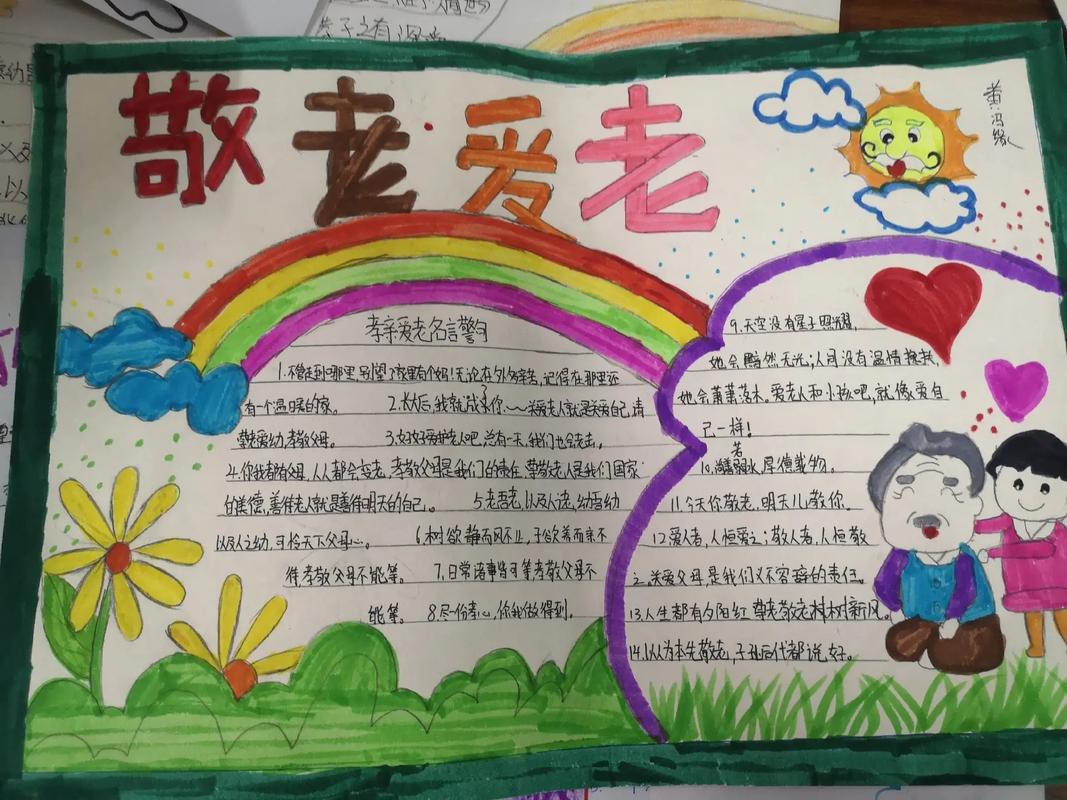 敬老爱老
黄冯缘
孝亲爱老名言警句
1.不管走到哪里,别望了家里有个妈!无论在外多辛苦,记得在那里还
有一个温暖的家。 2.长大后,我就成了你——关爱老人就是关爱自己,请
尊老爱幼,孝敬父母。 3.好好爱护老人吧,总有一天,我们也会老去。
4.你我都有父母,人人都会变老,孝敬父母是我们的责任,尊敬老人是我们国家
的美德,善待老人就是善待明天的自己。 5.老吾老,以及人之老,幼吾幼
以及人之幼,可怜天下父母心。 6.树欲静而风不止,子欲养而亲不
待孝敬父母不能等。 7.日常诸事皆可等孝敬父母不
能等。 8.尽一份孝心,你我做得到。
9.天空没有星子照耀,
她会黯然无光;人间没有温情挽救,
她会萧萧落木。爱老人和小孩吧,就像爱自
己一样!
10.上善若水,厚德载物。
11.今天你敬老,明天儿敬你。
12.爱人者,人恒爱之;敬人者,人恒敬
之。关爱父母,是我们义不容辞的责任。
13.人生都有夕阳红,尊老敬老树新风。
14.以人为本先敬老,子孙后代都说好。